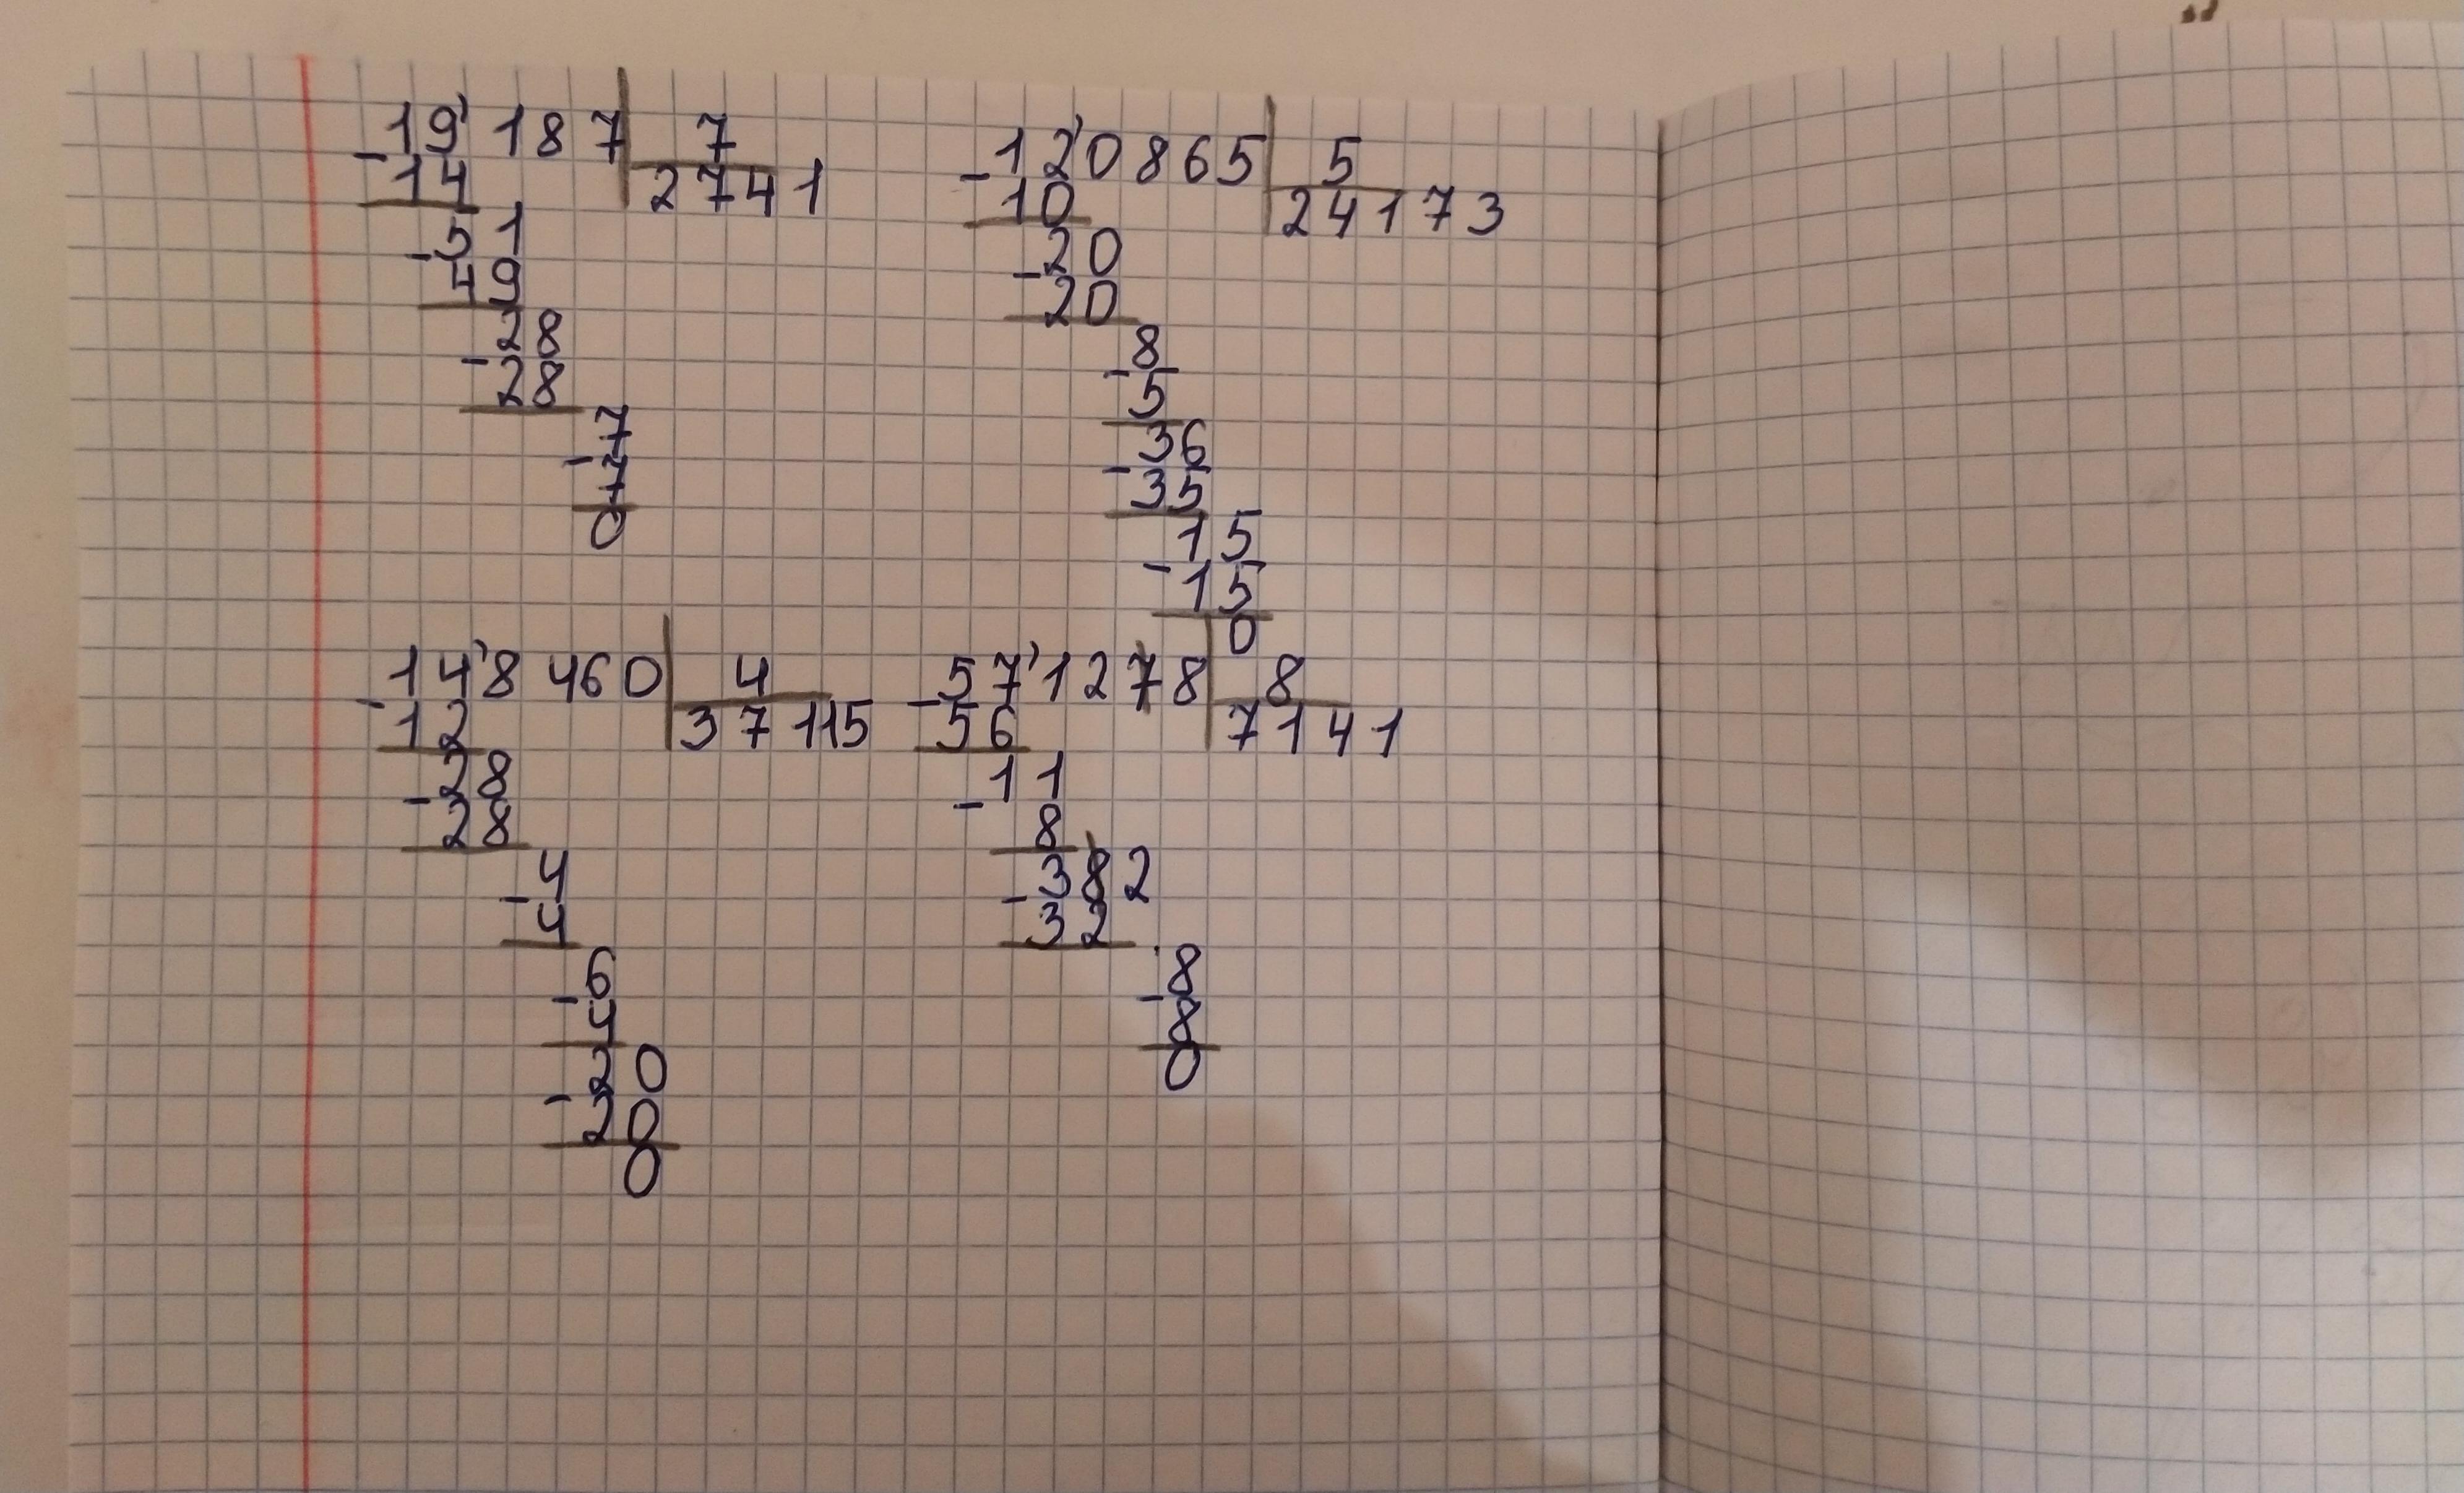 19'187 7
-14 2741
-51
49
-28
28
-7
7
0
12'0865 5
-10 24173
-20
20
-8
5
-36
35
-15
15
0
14'8460 4
-12 37115
-28
28
-4
4
-6
4
-20
20
0
57'1278 8
-56 7141
-11
8
-382
32
-8
8
0